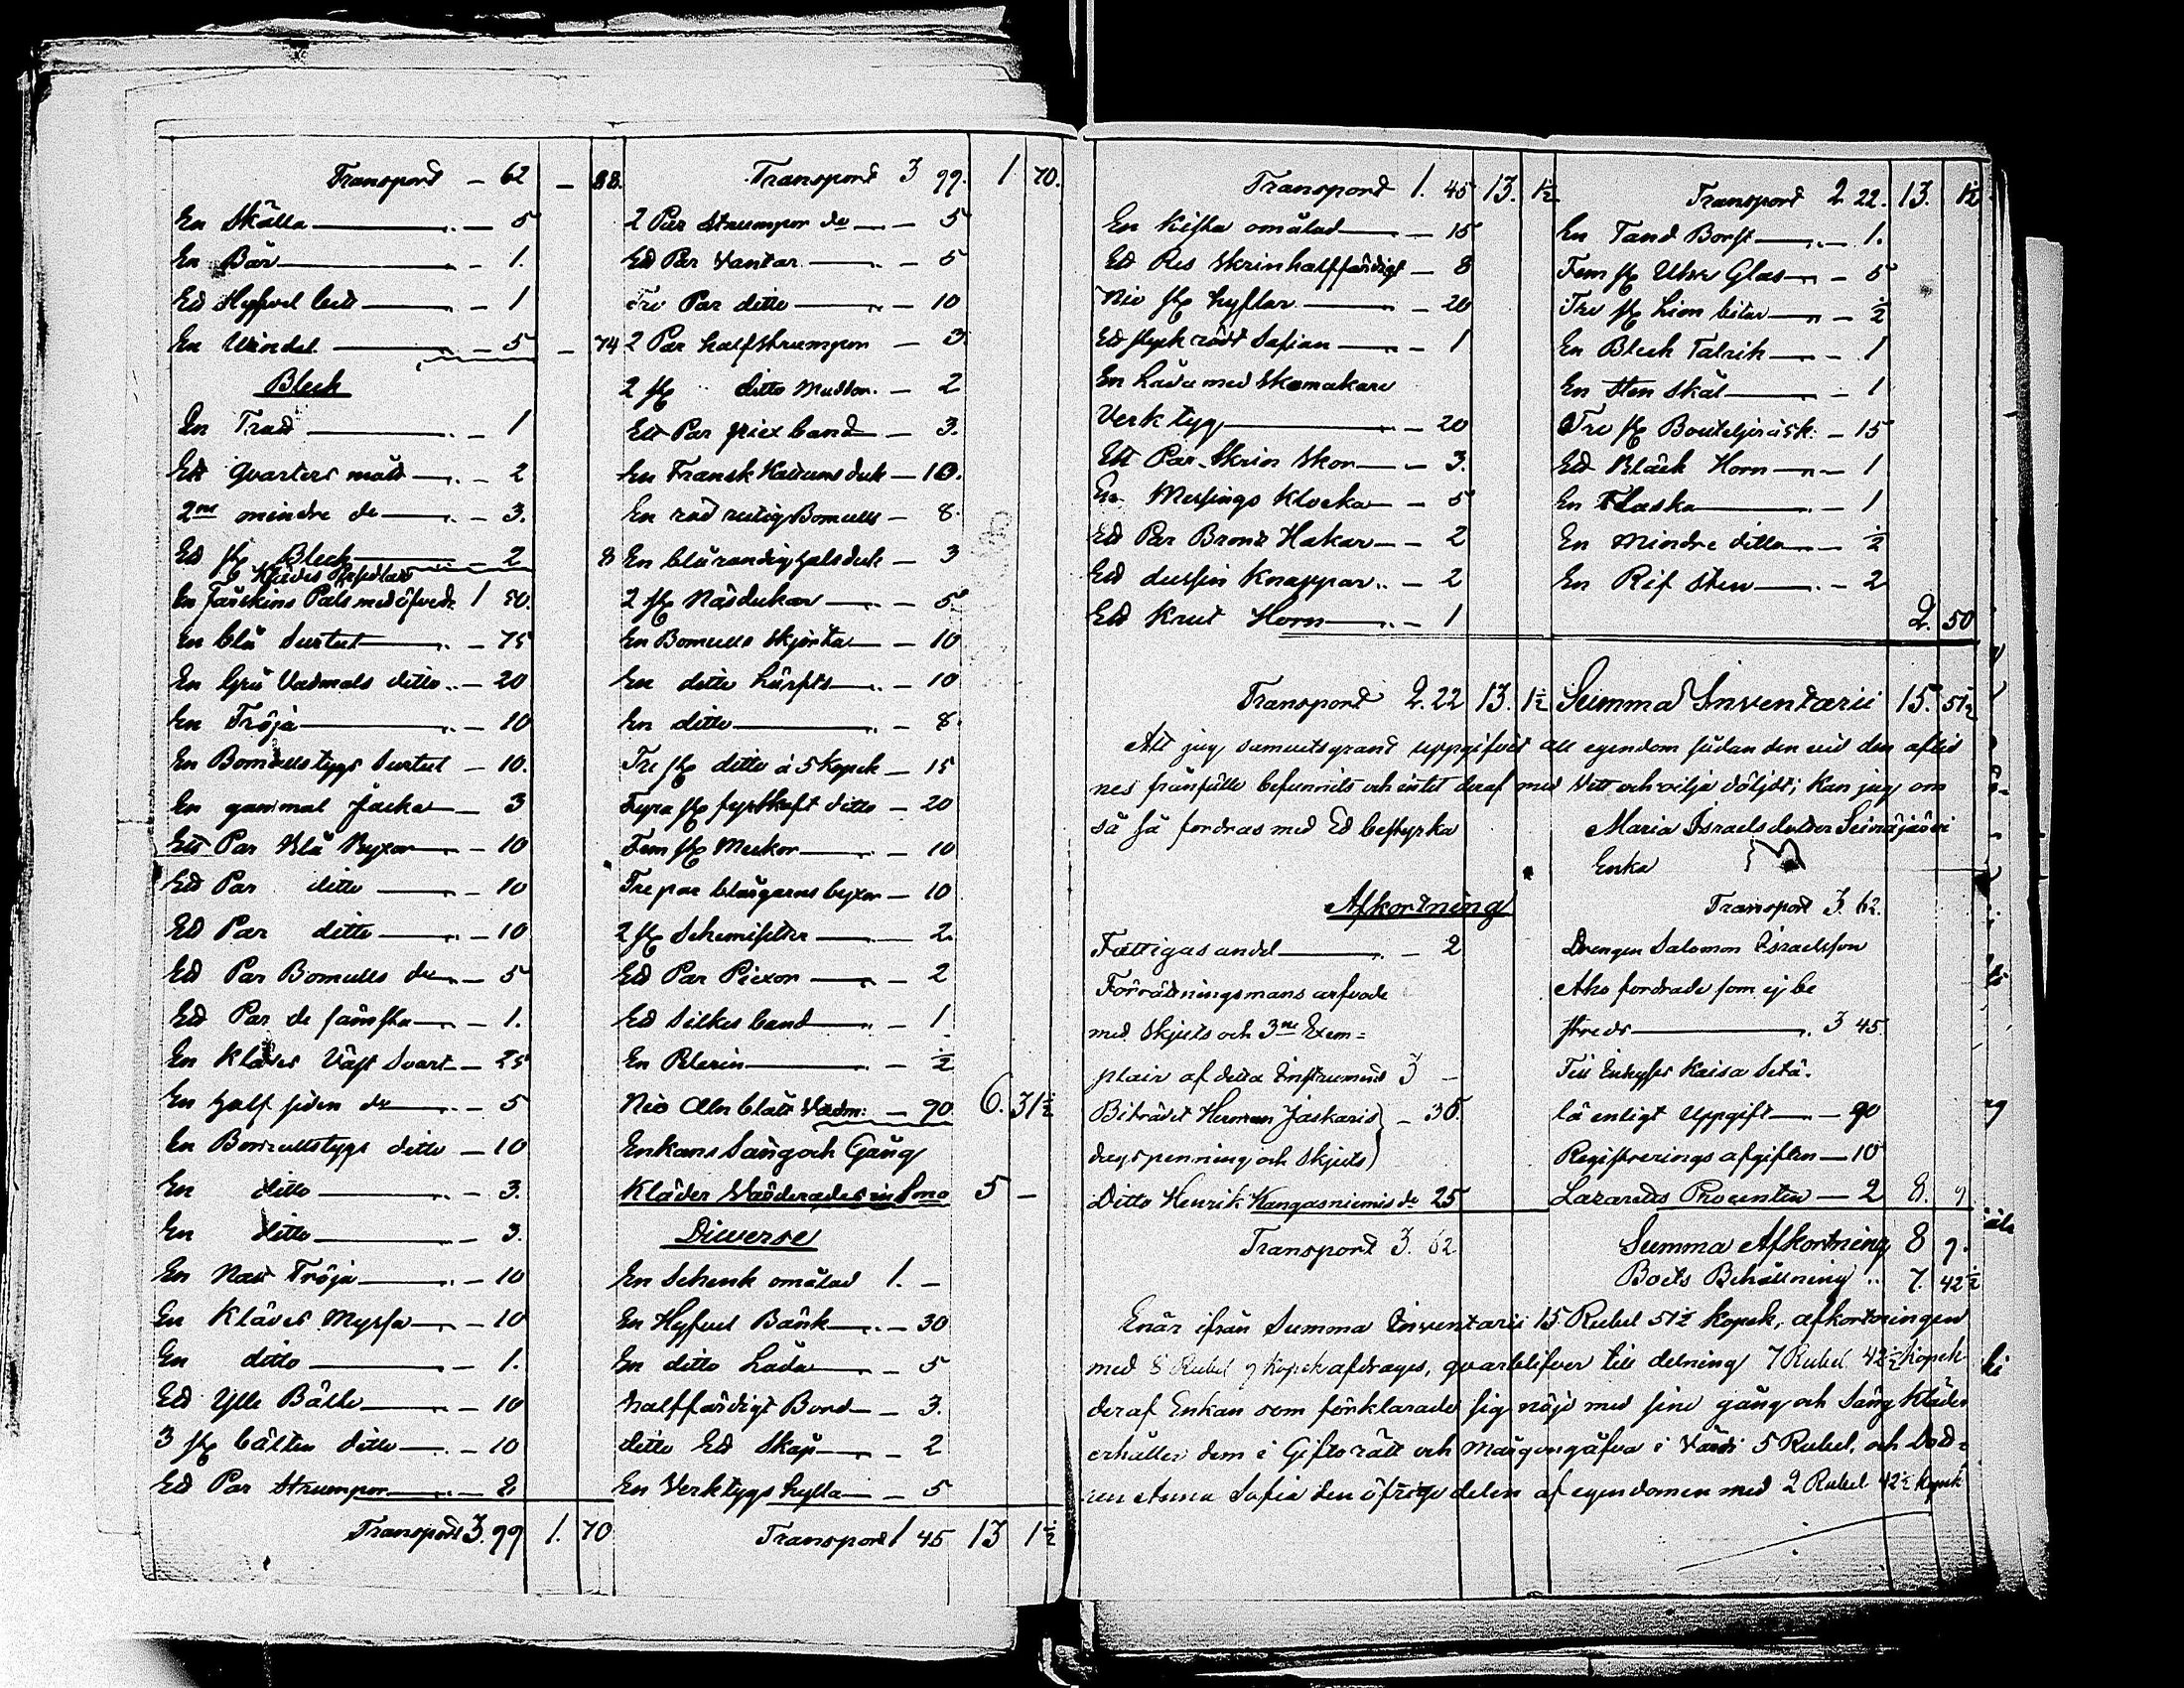 Transport — 62 — 88.
En Skälla — 5
En Bär — 1.
Ett Hyfvel bett — 1
En Windel — 5 — 74
Bleck
En Tratt — 1
Ett Qvarters mått — 2
2ne mindre do — 3.
Ett st Bleck — 2 8
Klädes Persedlar
En Fårskins Päls med öfverdr 1 50.
En blå Surtut — 75
En Grå Vadmals ditto — 20
En Tröja — 10
En Bomullstygs Surtut — 10.
En gammal Jacka — 3
Ett Par blå Byxor — 10
Ett Par ditto — 10
Ett Par ditto — 10
Ett Par Bomulls do — 5
Ett Par do sämsta — 1.
En Klädes Väst Svart — 25
En half siden do — 5
En Bomullstygs ditto — 10
En ditto — 3.
En ditto — 3.
En Natt Tröja — 10
En Klädes Myssa — 10
En ditto — 1.
Ett Ylle Bälte — 10
3 st bälten ditto — 10
Ett Par Strumpor — 8
Transport 3. 99 1. 70
Transport 3 99. 1 70.
2 Par Strumpor do — 5
Ett Par Vantar — 5
Tre Par ditto — 10
2 Par half Strumpor — 3
2 st ditto — 2
Ett Par band — 3.
En Fransk Kattuns duk — 10.
En röd rutig Bomulls — 8.
En blårandig halsduk — 3
2 st Näsdukar — 5
En Bomulls Skjorta — 10
En ditto Lärfts — 10
En ditto — 8.
Tre st ditto à 5 Kopek — 15
Fyra st fyrskaft ditto — 20
Fem st Meckor — 10
Tre par blaggarns byxor — 10
2 st Schemisetter — 2.
Ett Par Piexor — 2
Ett Silkes band — 1
En Pelerin — ½
Nio Aln blått Vadm: — 90 6. 31½
Enkans Säng och Gång
Kläder Värderades in Smo 5 —
Diverse
En Schenk omålad 1. —
En Hyfvel Bänk — 30
En ditto Låda — 5
halffärdigt Bord — 3.
ditto Ett Skåp — 2
En Verktygs hylla — 5
Transport 1 45 13 1½
Transport 1. 45 13. 1½
En Kista omålad — 15
Ett Res Skrin halffärdigt — 8
Nio st hyflar — 20
Ett styck rödt Safian — 1
En Låda med Skomakare
Verktyg — 20
Ett Par Skrin Skor — 3.
En Messings Klocka — 5
Ett Par Bronz Hakar — 2
Ett dussin Knappar — 2
Ett Krut Horn — 1
Transport 2. 22 13. 1½
Transport 2. 22. 13. 1½
En Tand Borst — 1.
Fem st Glas — 5
Tre st Lion bitar — ½
En Bleck Talrik — 1
En Sten skål — 1
Tre st — 15
Ett Bläck Horn — 1
En Flaska — 1
En Mindre ditto — ½
En Rif Sten — 2
2. 50
Summa Inventarii 15. 51½
Att jag samvetsgrant uppgifvit all egendom sådan den vid den aflid
nes frånfälle befunnits och intet deraf med Vett och vilja döljdt; kan jag om
så så fordras med Ed bestyrka
Maria Israelsdotter Seinäjärvi
Enka
Afkortning
Fattigas andel — 2
Förrättningsmans arfvode
med skjuts och 3ne Exem=
plair af detta Instrument 3 —
Biträdet Herman Jaskaris
dagspenning och skjuts — 35.
Ditto Henrik Kangasniemis do 25
Transport 3. 62
Transport 3. 62.
Drengen Salomon Israelsson
Aho fordrade som ej be
streds — 3 45.
Till Kaisa Setä.
lä enligt Uppgift — 90
Registrerings afgiften — 10
Lazaretts Procenten — 2 8. 9
Summa Afkortning 8 9.
Boets Behållning 7. 42½
Enär ifrån Summa Inventarii 15 Rubel 51½ Kopek, afkortningen
med 8 Rubel 9 Kopek afdrages, qvarblifver till delning 7 Rubel 42½ Kopek
deraf Enkan som förklarade sig nöjd med sine gång och Säng Kläder
erhåller dem i Giftorätt och Morgongåfva i Värde 5 Rubel, och Dott=
ren Anna Sofia den öfrige delen af egendomen med 2 Rubel 42½ Kopek